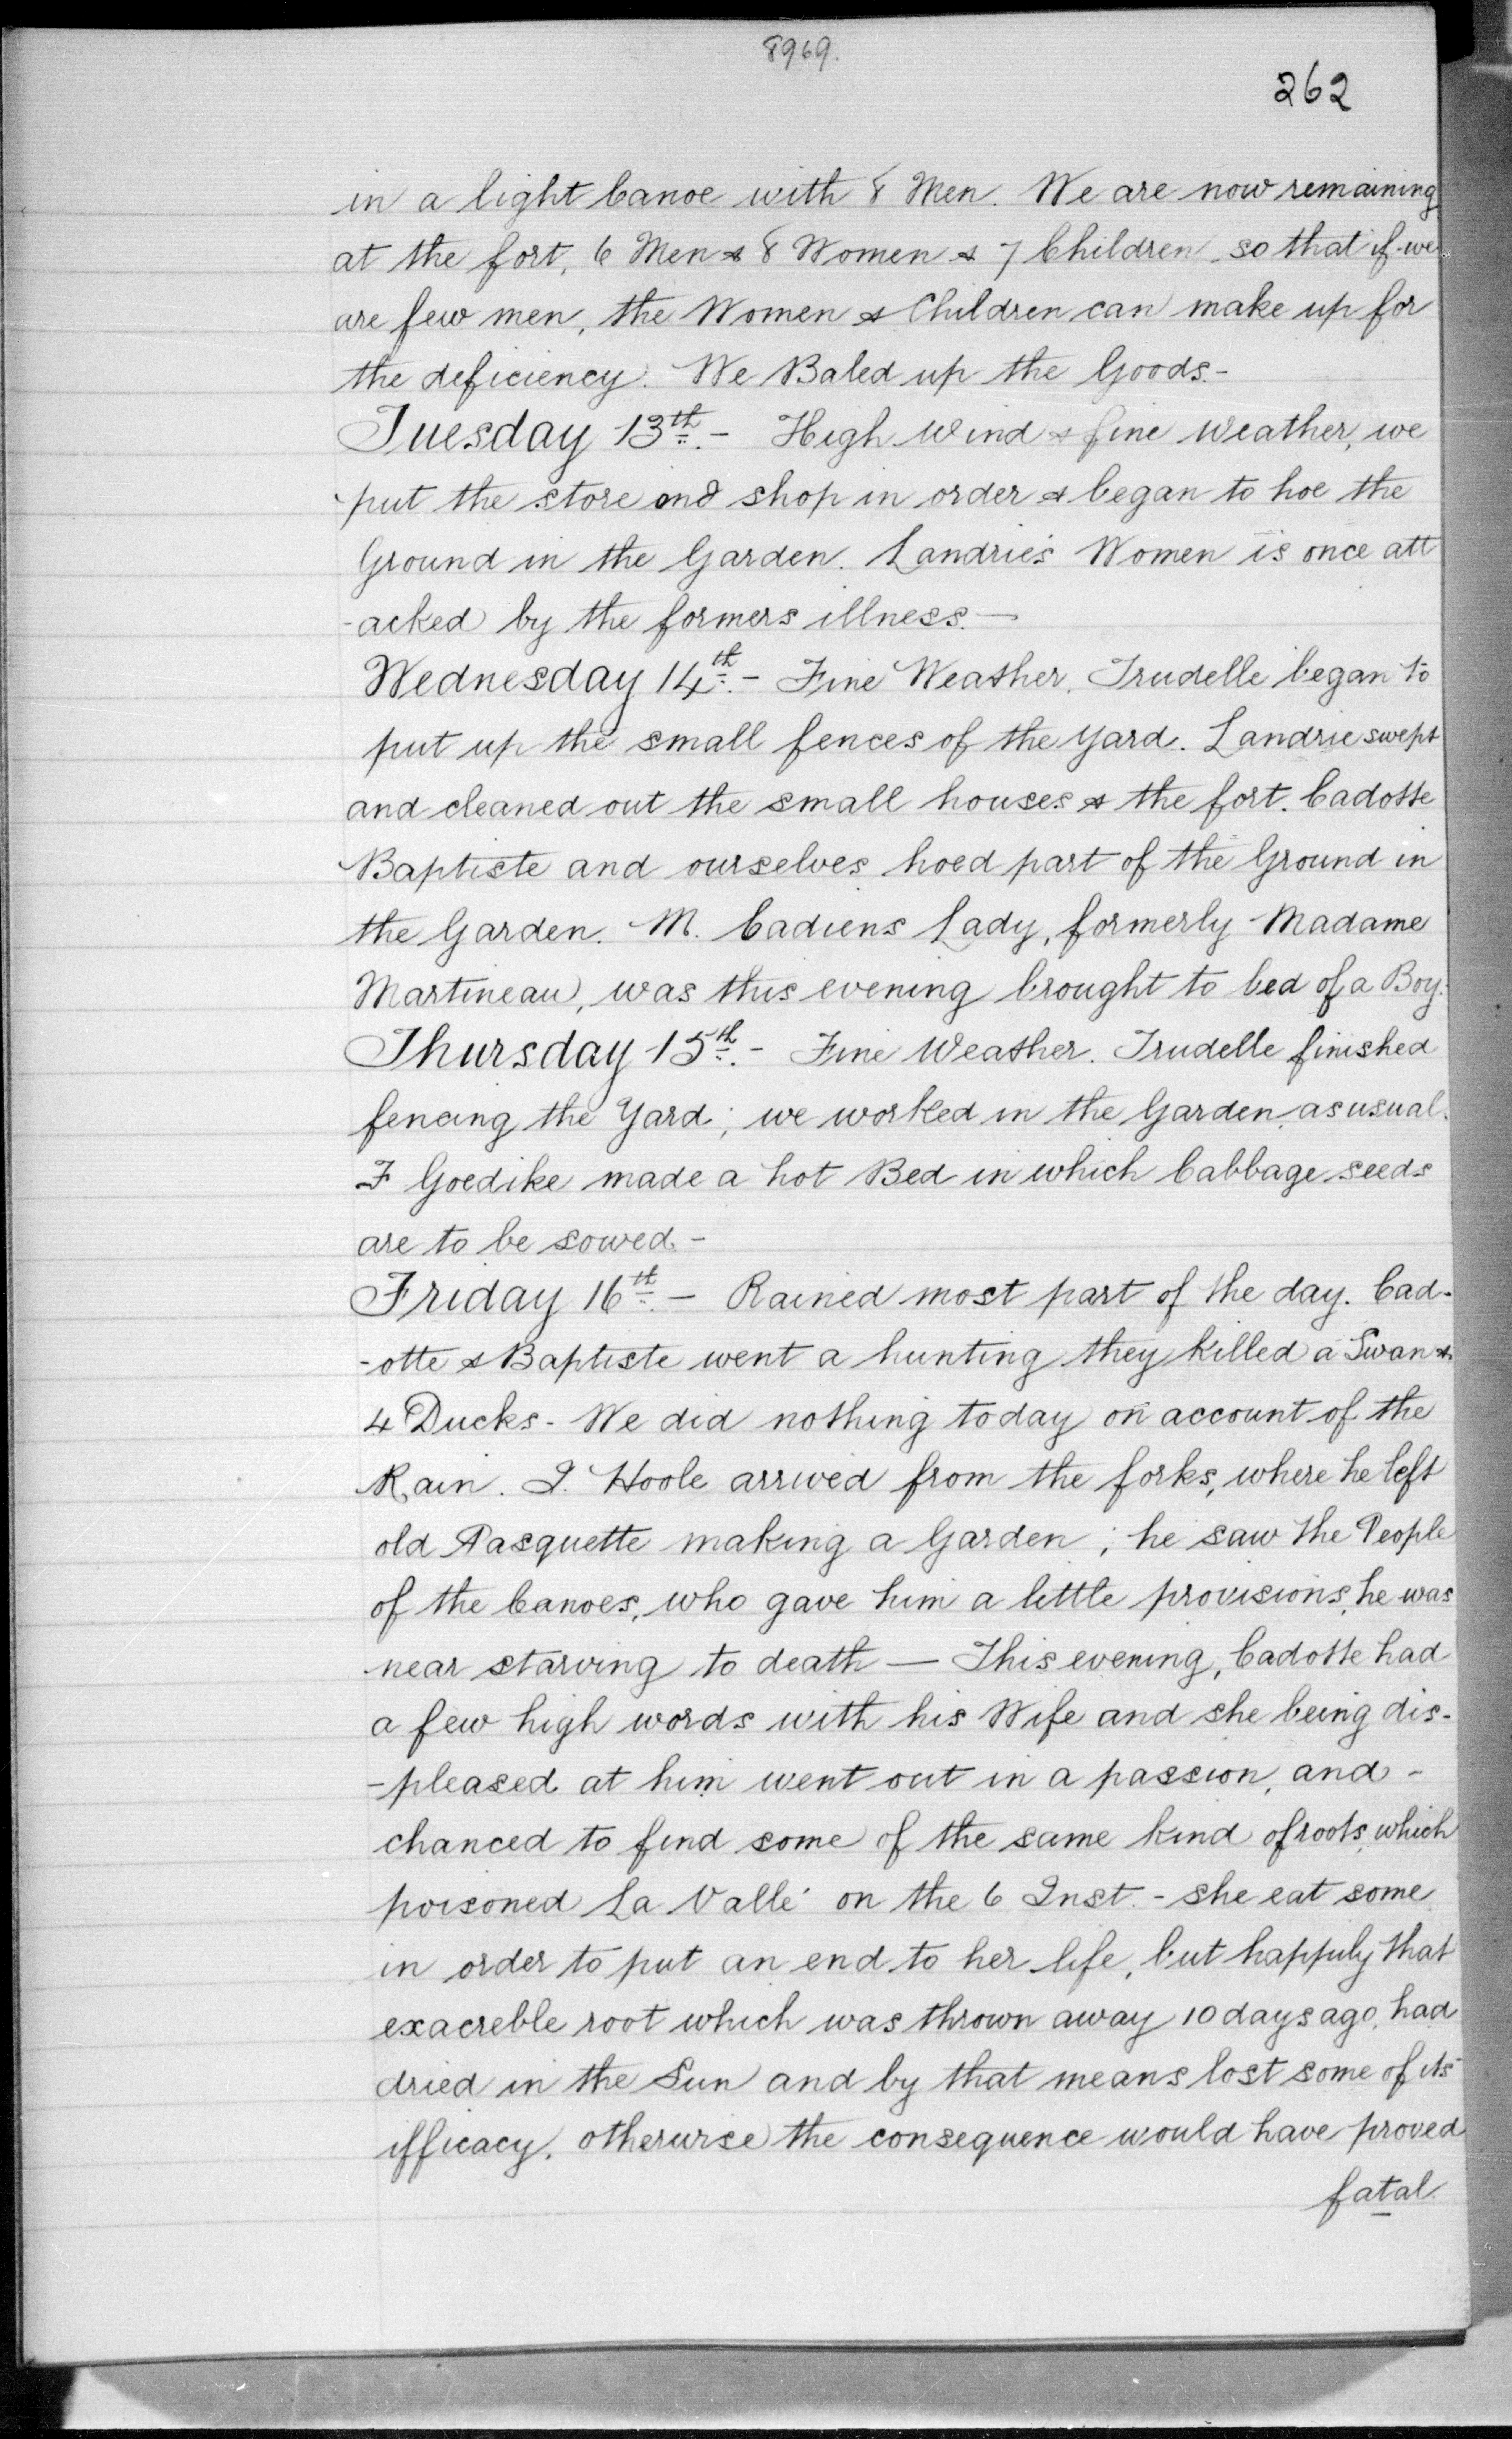 8969.
262
in a light Canoe with 8 Men. We are now remaining
at the fort, 6 Men & 8 Women & 7 Children, so that if we
are few men, the Women & Children can make up for
the deficiency. We Baled up the Goods.-
Tuesday 13th.- High Wind & fine Weather, we
put the store and shop in order & began to hoe the
Ground in the Garden. Landrie's Women is once att
-acked by the formers illness.—
Wednesday 14th.- Fine Weather. Trudelle began to
put up the small fences of the Yard. Landrie swept
and cleaned out the small houses & the fort. Cadotte
Baptiste and ourselves hoed part of the Ground in
the Garden. M. Cadiens Lady, formerly Madame
Martineau, was this evening brought to bed of a Boy.
Thursday 15th.- Fine Weather. Trudelle finished
fencing the Yard; we worked in the Garden, as usual.
F Goedike made a hot Bed in which Cabbage seeds
are to be sowed.-
Friday 16th.- Rained most part of the day. Cad-
-otte & Baptiste went a hunting they killed a Swan &
4 Ducks- We did nothing today on account of the
Rain. J. Hoole arrived from the forks, where he left
old Pasquette making a Garden; he saw the People
of the Canoes, who gave him a little provisions, he was
near starving to death — This evening, Cadotte had
a few high words with his Wife and she being dis-
-pleased at him went out in a passion, and -
chanced to find some of the same kind of roots, which
poisoned La Vallé on the 6 Inst.- she eat some
in order to put an end to her life, but happily that
exacreble root which was thrown away 10 days ago, had
dried in the Sun and by that means lost some of its
ifficacy, otherwise the consequence would have proved
fatal.